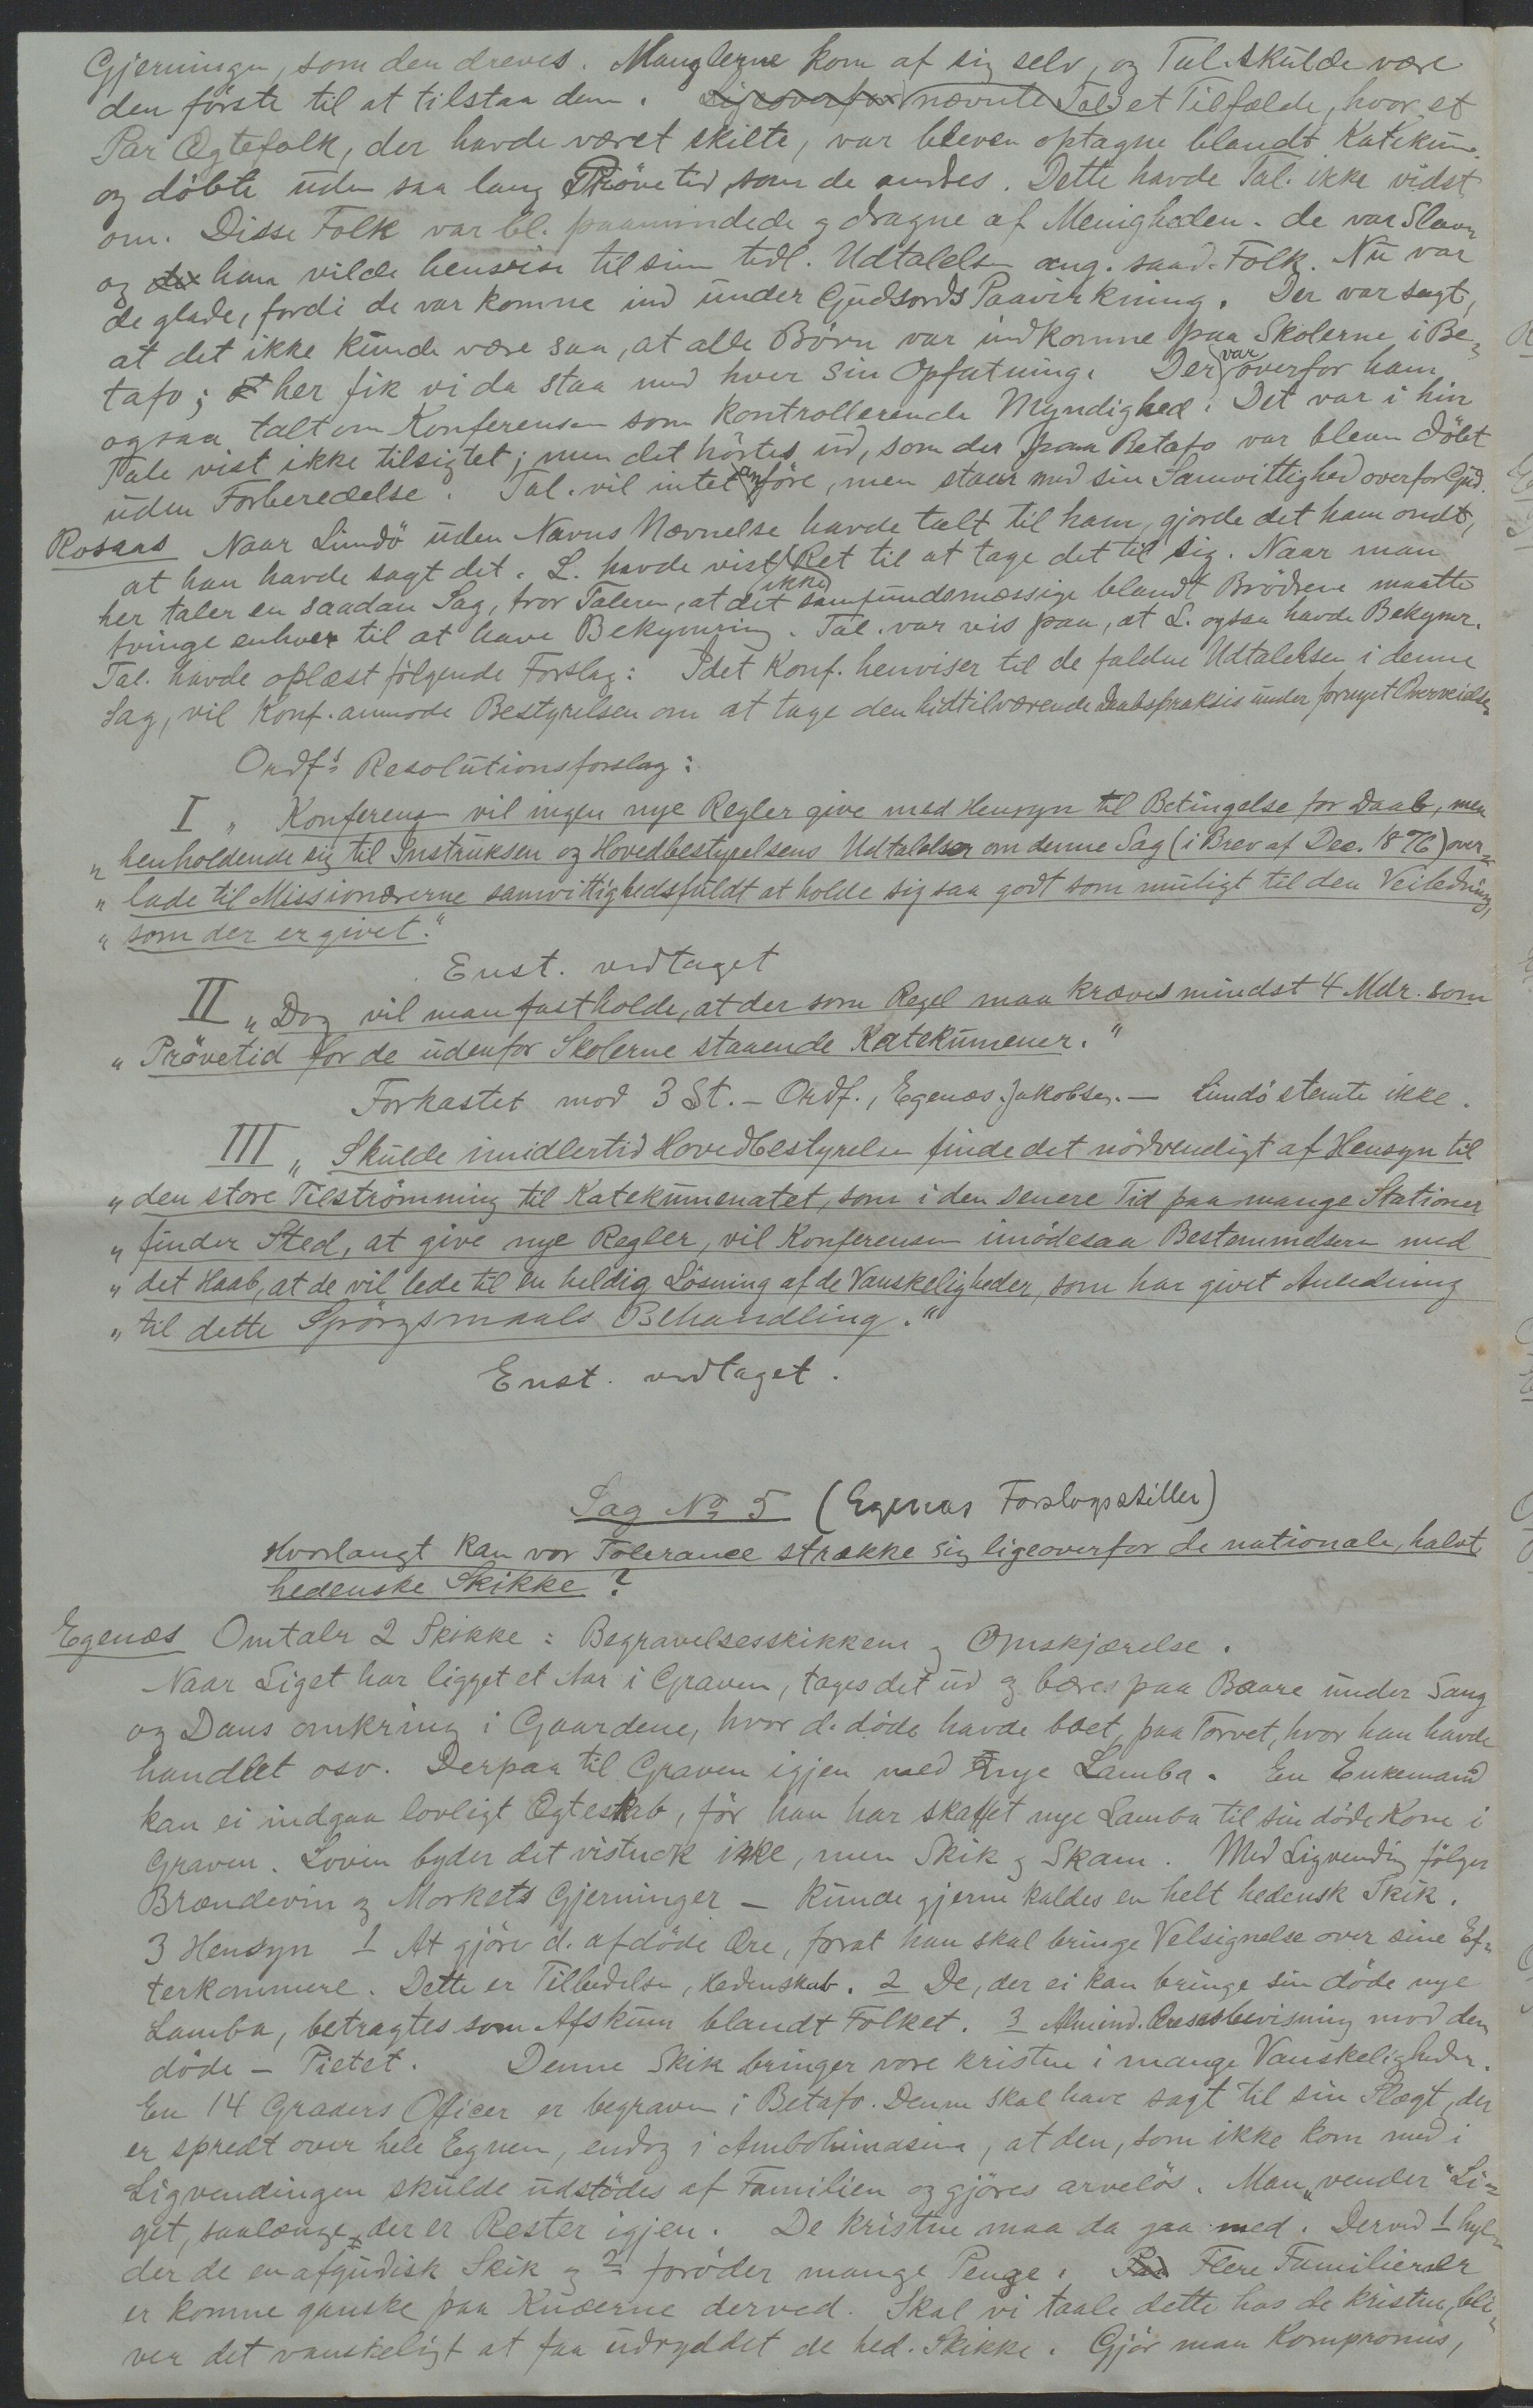 Gjerningen, som den dreves. Manglerne kom af sig selv, og Tal. skulde være
den første til at tilstaa dem. Ligeoverfor nævnte Tal. et Tilfælde, hvor et
Par Ægtefolk, der havde været skilte, var bleven optagne blandt Katekum.
og döbte uden saa lang Prövetid, som de andres. Dette havde Tal. ikke vidst
om. Disse Folk var bl. paamindede og dragne af Menigheden - de var Slaver
og han vilde henvise til sin tidl. Udtalelse ang. saad. Folk. Nu var
de glade, fordi de var komne ind under Gudsords Paavirkning. Der var sagt,
at det ikke kunde være saa, at alle Börn var indkomne paa Skolerne i Be-
tafo; her fik vi da staa med hver sin Opfatning. Der var overfor ham
ogsaa talt om Konferensen som kontrollerende Myndighed. Det var i hin
Tale vist ikke tilsigtet; men det hörtes ud, som der paa Betafo var bleven döbt
uden Forberedelse. Tal. vil intet anföre, men staar med sin Samvittighed overfor Gud.
Rosaas Naar Lindö uden Navns Nævnelse havde talt til ham, gjorde det ham ondt,
at han havde sagt det. L. havde vist ikke Ret til at tage det til sig. Naar man
her taler en saadan Sag, tror Taleren, at det samfundsmæssige blandt Brödrene maatte
tvinge enhver til at have Bekymring. Tal. var vis paa, at L. ogsaa havde Bekymr.
Tal. havde oplæst fölgende Forslag: Idet Konf. henviser til de faldne Udtalelser i denne
Sag, vil Konf. anmode Bestyrelsen om at tage den hidtilværende Daabspraksis under fornyet Overveielse.
Ordf's Resolutionsforslag:
I „Konferensen vil ingen nye Regler give med Hensyn til Betingelse for Daab, men
„henholdende sig til Instruksen og Hovedbestyrelsens Udtalelser om denne Sag (i Brev af Dec. 1876) over-
„lade til Missionærerne samvittighedsfuldt at holde sig saa godt som muligt til den Veiledning,
„som der er givet."
Enst. vedtaget
II „Dog vil man fastholde, at der som Regel maa kræves mindst 4 Mdr. som
„Prövetid for de udenfor Skolerne staaende Katekumener."
Forkastet mod 3 St. - Ordf., Egenæs. Jakobsen. - Lindö stemte ikke.
III „Skulde imidlertid Hovedbestyrelsen finde det nödvendigt af Hensyn til
„den store Tilströmning til Katekumenatet, som i den senere Tid paa mange Stationer
„finder Sted, at give nye Regler, vil Konferensen imödesaa Bestemmelsen med
„det Haab, at de vil lede til en heldig Lösning af de Vanskeligheder, som har givet Anledning
„til dette Spörgsmaals Behandling."
Enst. vedtaget.
Sag No 5 (Egenæs Forslagsstiller)
Hvorlangt kan vor Tolerance strække sig ligeoverfor de nationale, halvt
hedenske Skikke?
Egenæs Omtaler 2 Skikke: Begravelsesskikkene og Omskjærelse.
Naar Liget har ligget et Aar i Graven, tages det ud og bæres paa Baare under Sang
og Dans omkring i Gaardene, hvor d. döde havde boet, paa Torvet, hvor han havde
handlet osv. Derpaa til Graven igjen med nye Lamba. En Enkemand
kan ei indgaa lovligt Ægteskab, för han har skaffet nye Lamba til sin döde Kone i
Graven. Loven byder det vistnok ikke, men Skik og Skam. Med Ligvending fölger
Brændevin og Mørkets Gjerninger - kunde gjerne kaldes en helt hedensk Skik.
3 Hensyn 1 At gjöre d. afdöde Ære, forat han skal bringe Velsignelse over sine Ef-
terkommere. Dette er Tilbedelse, Hedenskab. 2 De, der ei kan bringe sin döde nye
Lamba, betragtes som Afskum blandt Folket. 3 Almind. Æresbevisning mod den
döde - Pietet. Denne Skik bringer vore kristne i mange Vanskeligheder.
En 14 Graders Officer er begraven i Betafo. Denne skal have sagt til sin Slægt, der
er spredt over hele Egnen, endog i Ambohimasina, at den, som ikke kom med i
Ligvendingen skulde udstödes af Familien og gjöres arvelös. Man „vender" Li-
get, saalænge der er Rester igjen. De kristne maa da gaa med. Derved 1 hyl-
der de en afgudisk Skik og 2 forøder mange Penge. Flere Familier er
er komne ganske paa Knæerne derved. Skal vi taale dette hos de kristne, bli-
ver det vanskeligt at faa udryddet de hed. Skikke. Gjör man Kompromis,